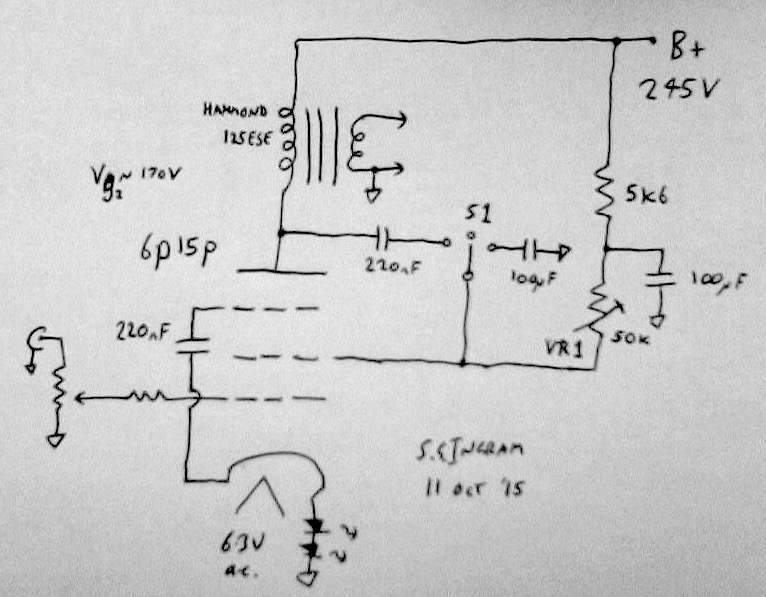 B+
245V
HAMMOND
125ESE
Vg2 ~ 170V
5k6
S1
6p15p
220nF
100µF
100µF
220nF
VR1
50k
S.C INGRAM
11 OCT '15
63V
ac.